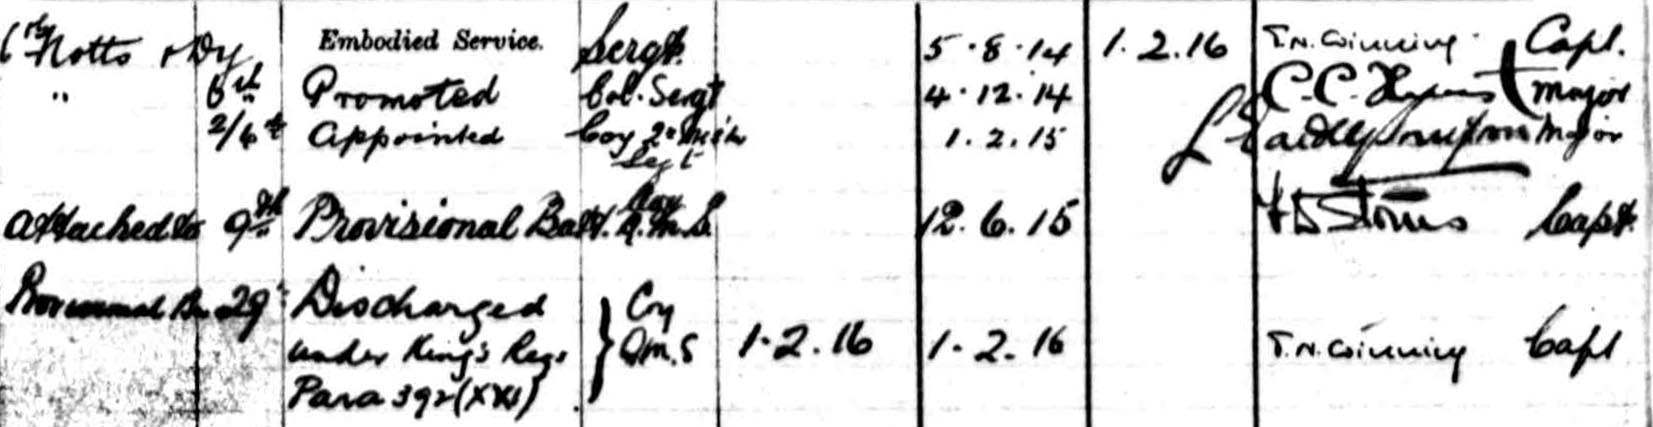 6th Notts & Dy Embodied Service. Sergt. 5.8.14 1.2.16 T.N. Capt.
" 6th Promoted Col. Sergt 4.12.14 C.C. Major
2/6th Appointed Coy Sergt 1.2.15 Major
Attached to 9th Provisional Batt. Coy Q.M.S. 12.6.15 Capt.
Provisional Bn 29 Discharged Coy
under King's Regs Q.M.S 1.2.16 1.2.16 T.N. Capt
Para 392 (XXI)